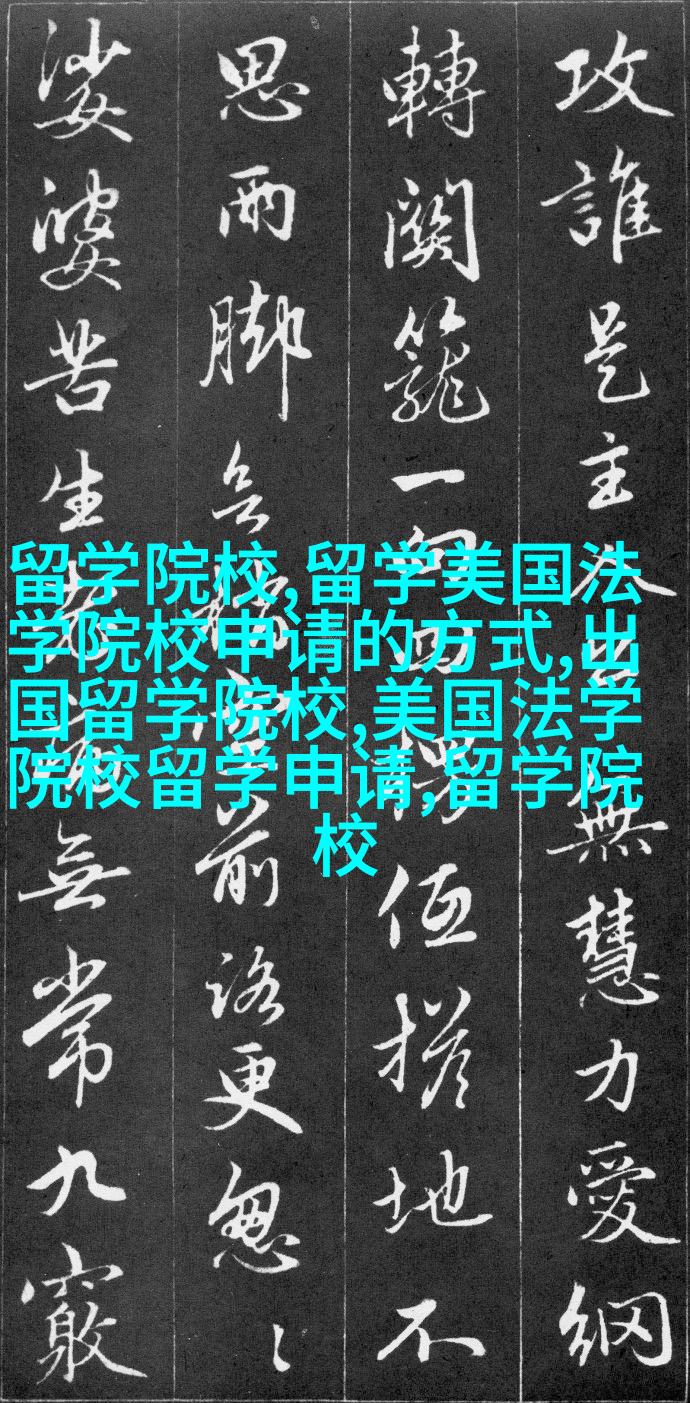 攻誰是主無慧力愛網
轉關籠一地不
思兩脚前路更怱
娑婆苦生無常九竅
留学院校,留学美国法
学院校申请的方式,出
国留学院校,美国法学
院校留学申请,留学院
校